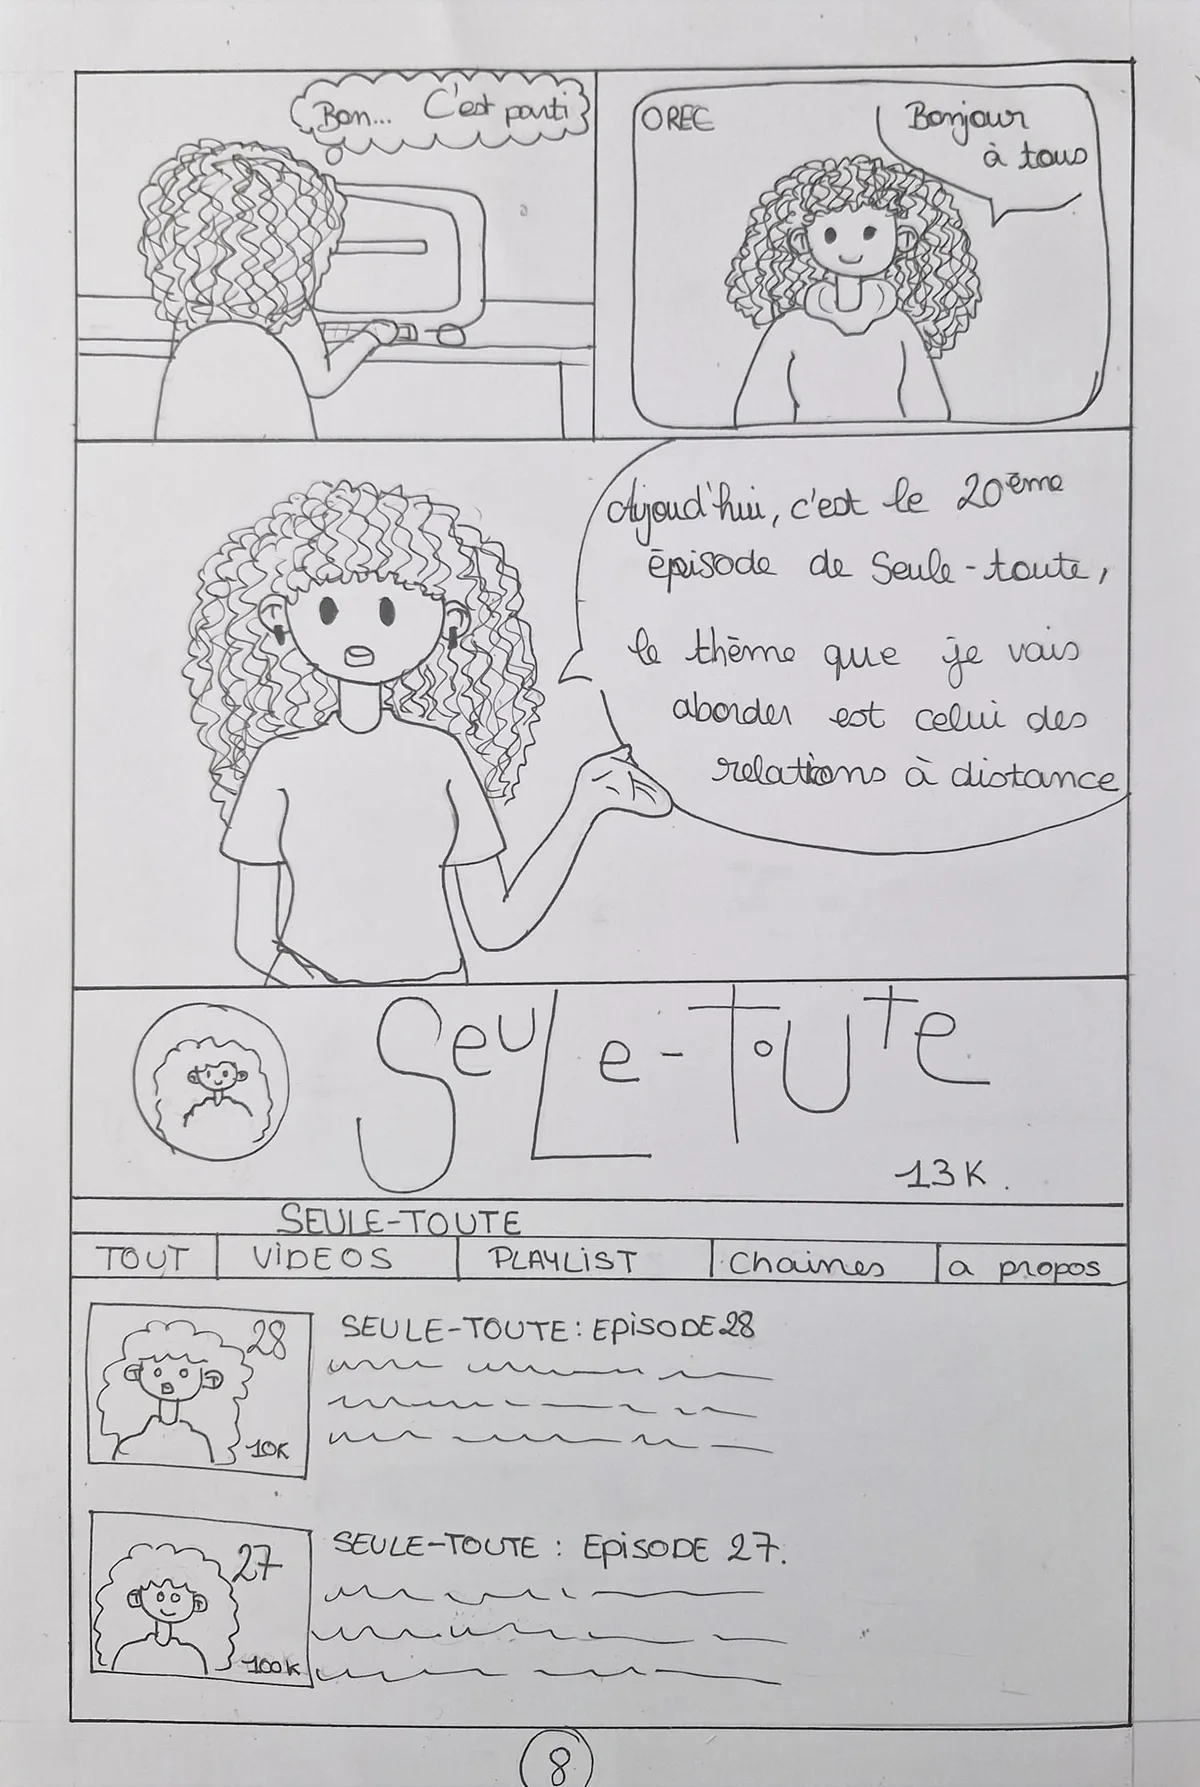 Bon... C'est parti
O REC
Bonjour
à tous
Aujoud'hui, c'est le 20ème
épisode de Seule-toute,
le thème que je vais
aborder est celui des
relations à distance
SeuLe-ToUTe
13K.
SEULE-TOUTE
TOUT
VIDEOS
PLAYLIST
Chaines
a propos
28
10K
SEULE-TOUTE: EPISODE 28
27
100K
SEULE-TOUTE : EPISODE 27.
8